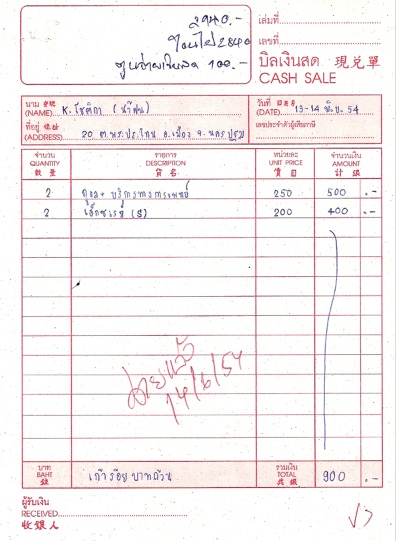 2940.-
โอนไป 2840
100.-
เล่มที่
เลขที่
บิลเงินสด 現兌單
CASH SALE
นาม 寶號 (NAME) K. โชติกา (น้ำฝน)
วันที่ (DATE) 13-14 มิ.ย. 54
ที่อยู่ 住址 (ADDRESS) 20 ต.พระประโทน อ.เมือง จ.นครปฐม
เลขประจำตัวผู้เสียภาษี
จำนวน QUANTITY 數量 รายการ DESCRIPTION 貨名 หน่วยละ UNIT PRICE 價目 จำนวนเงิน AMOUNT 計銀
2 ดูแล+บริการทางการแพทย์ 250 500 .-
2 เอ็กซเรย์ (S) 200 400 .-
จ่ายแล้ว
14/6/54
บาท BAHT 銖 เก้าร้อยบาทถ้วน รวมเงิน TOTAL 共銀 900 .-
ผู้รับเงิน
RECEIVED
收銀人